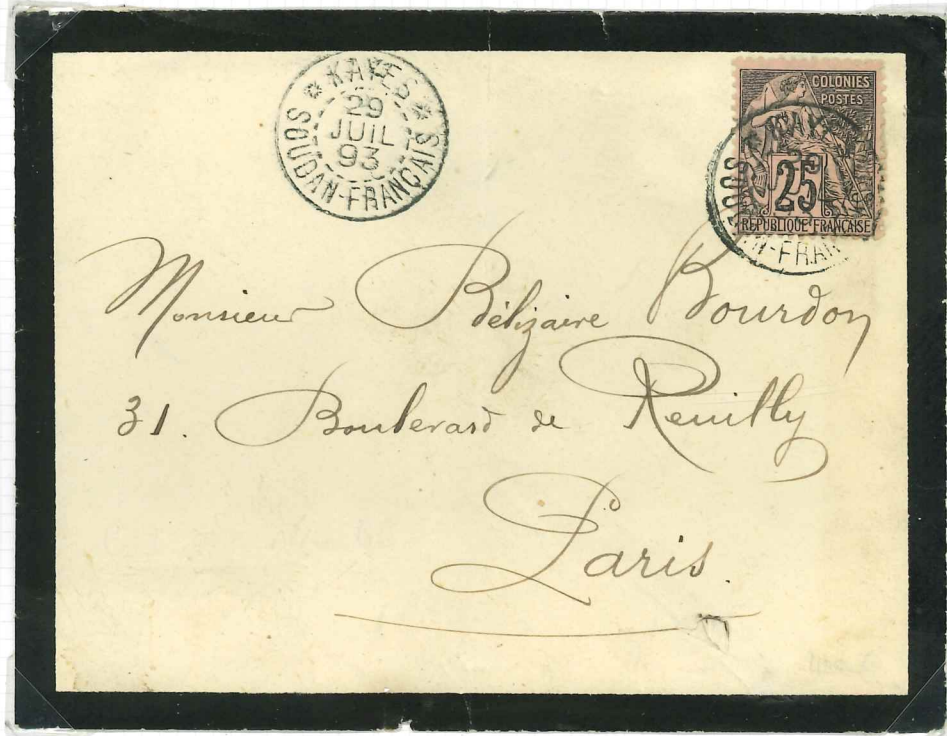 KAYES
29
JUIL
93
SOUDAN-FRANÇAIS
COLONIES
POSTES
25
REPUBLIQUE FRANÇAISE
Monsieur Bélizaire Bourdon
31. Boulevard de Reuilly
Paris.